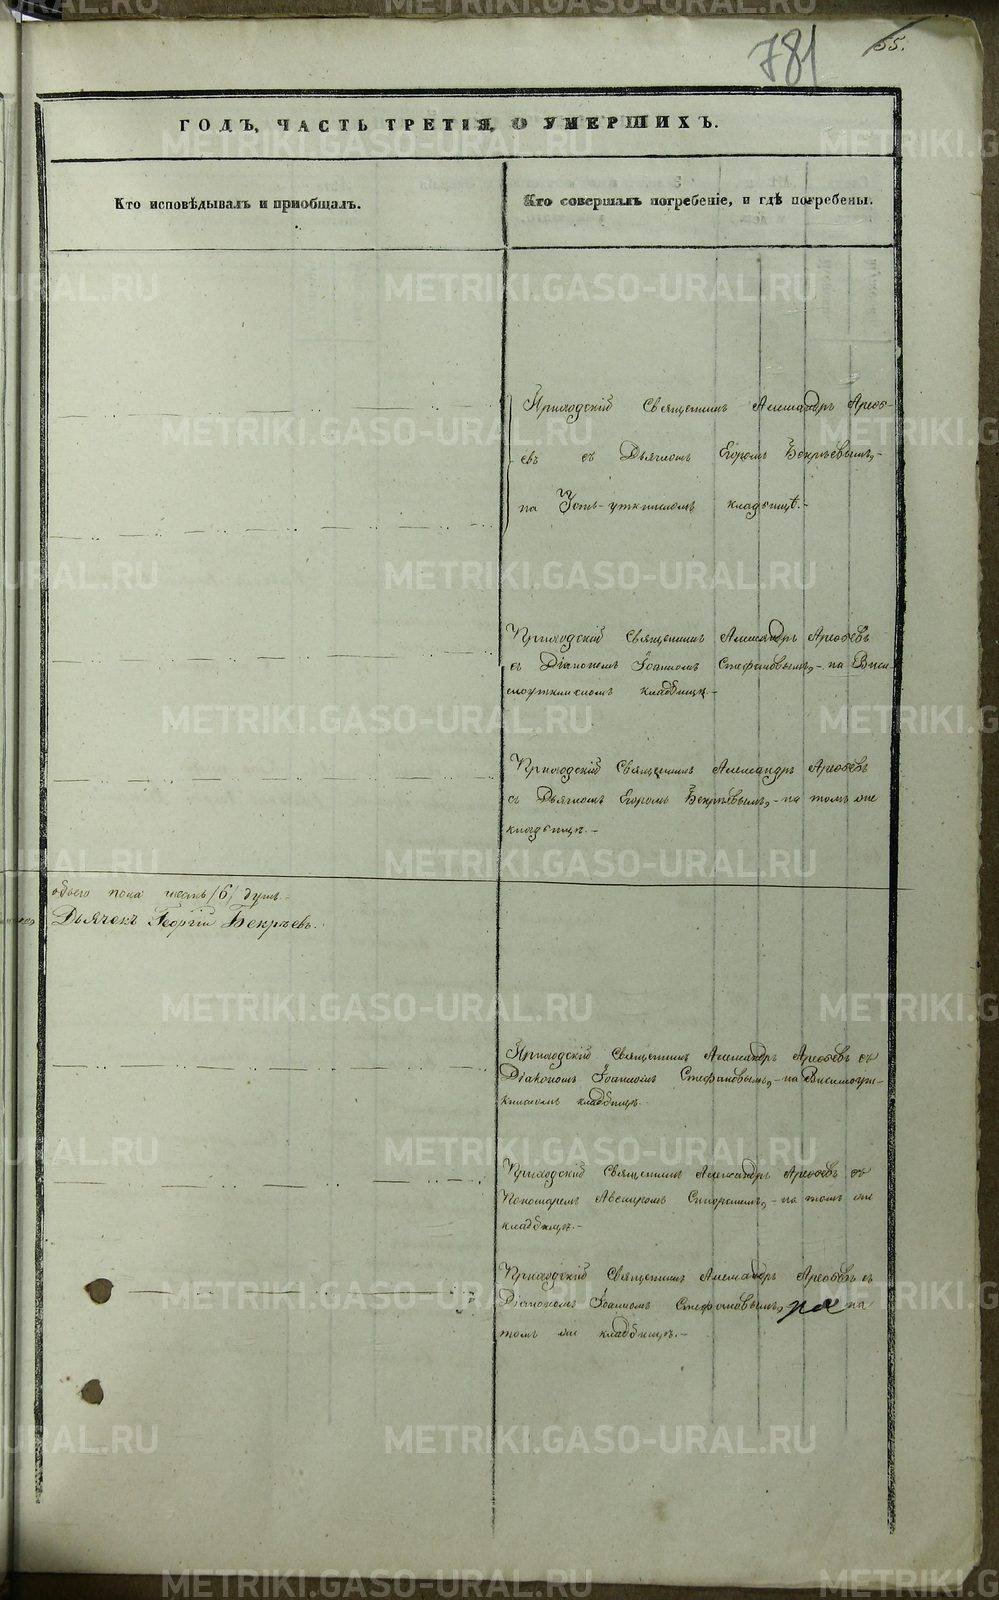 781
55.
ГОДЪ, ЧАСТЬ ТРЕТІЯ, О УМЕРШИХЪ.
Кто исповѣдывалъ и пріобщалъ.
Кто совершалъ погребеніе, и гдѣ погребены.
Приходскій Священникъ Александръ Арефь-
евъ съ Дьячкомъ Егоромъ Бекрѣевымъ,-
на Усть-уткинскомъ кладбищѣ.-
Приходскій Священникъ Александръ Арефьевъ
съ Діакономъ Іоанномъ Стефановымъ,- на Виси-
моуткинскомъ кладбищѣ.-
Приходскій Священникъ Александръ Арефьевъ
съ Дьячкомъ Егоромъ Бекрѣевымъ,- на томъ же
кладбищѣ.-
обоего пола шесть /6/ душъ.-
Дьячекъ Георгій Бекрѣевъ.
Приходскій Священникъ Александръ Арефьевъ съ
Діакономъ Іоанномъ Стефановымъ,- на Висимоут-
кинскомъ кладбищѣ.
Приходскій Священникъ Александръ Арефьевъ съ
Пономаремъ на томъ же
кладбищѣ.-
Приходскій Священникъ Александръ Арефьевъ съ
Діакономъ Іоанномъ Стефановымъ,- на
томъ же кладбищѣ.-
METRIKI.GASO-URAL.RU